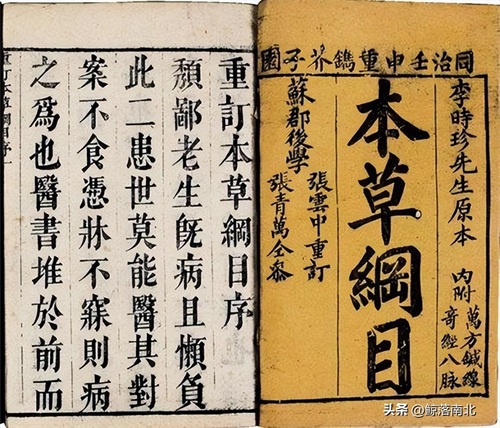 同治壬申重鐫芥子園
李時珍先生原本
內附
萬方鍼線
奇經八脉
本草綱目
蘇郡後學
張雲中重訂
張青萬仝叅
重訂本草綱目序
頹鄙老生旣病且懶負
此二患世莫能醫其對
案不食憑牀不寐則病
之爲也醫書堆於前而
重訂本草綱目序
头条 @鲸落南北